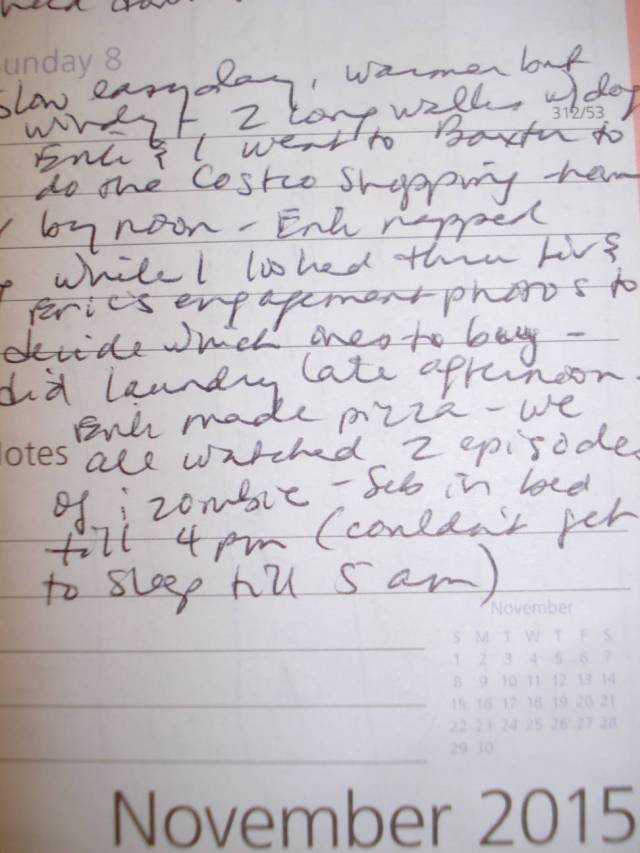 unday 8
slow easy day, warmer but
windy + 2 long walks w/ dog
312/53
Erik & I went to Baxter to
do the Costco shopping - hom
by noon - Erik napped
while I looked thru Liv &
Eric's engagement photos to
decide which ones to buy -
did laundry late afternoon.
Erik made pizza - we
otes
all watched 2 episodes
of i zombie - Seb in bed
till 4 pm (couldn't get
to sleep till 5 am)
November
S M T W T F S
1 2 3 4 5 6 7
8 9 10 11 12 13 14
15 16 17 18 19 20 21
22 23 24 25 26 27 28
29 30
November 2015